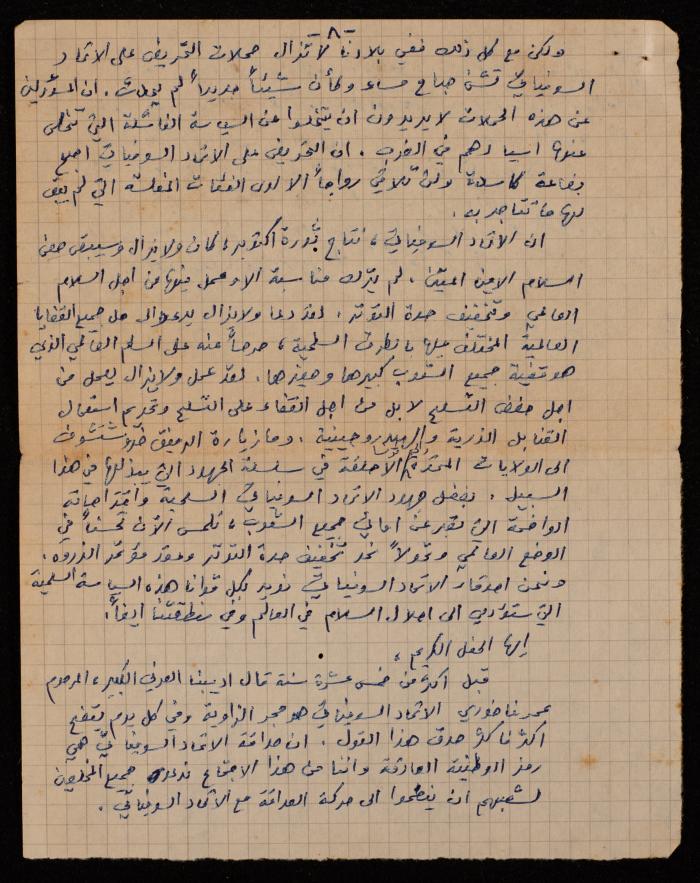 -٨-
ولكن مع كل ذلك ففي بلادنا لا تزال حملات التحريض على الاتحاد
السوفياتي تشن صباح مساء وكأن شيئاً جديداً لم يحدث. ان المسؤولين
عن هذه الحملات لا يريدون ان يتخلوا عن السياسة الفاشلة التي تخلى
عنها اسيادهم في الغرب. ان التحريض على الاتحاد السوفياتي اصبح
بضاعة كاسدة ولن تلاقي رواجاً الا لدى الفئات المفلسة التي لم يبق
لها ما تتاجر به.
ان الاتحاد السوفياتي، نتاج ثورة اكتوبر، كان ولا يزال وسيبقى حصن
السلام الامين المتين. لم يترك مناسبة الا وعمل فيها من اجل السلام
العالمي وتخفيف حدة التوتر. لقد دعا ولا يزال يدعو الى حل جميع القضايا
العالمية المختلف عليها بالطرق السلمية، حرصاً منه على السلم العالمي الذي
هو قضية جميع الشعوب كبيرها وصغيرها. لقد عمل ولا يزال يعمل من
اجل خفض التسلح لا بل من اجل القضاء على التسلح وتحريم استعمال
القنابل الذرية والهيدروجينية. وما زيارة الرفيق خروشتشوف
الى الولايات المتحدة الا حلقة في سلسلة الجهود التي يبذلها في هذا
السبيل. بفضل جهود الاتحاد السوفياتي السلمية واقتراحاته
الواضحة التي تعبر عن اماني جميع الشعوب، نلمس الآن تحسناً في
الوضع العالمي وتحولاً نحو تخفيف حدة التوتر وعقد مؤتمر الذروة.
ونحن اصدقاء الاتحاد السوفياتي نؤيد بكل قوانا هذه السياسة السلمية
التي ستؤدي الى احلال السلام في العالم وفي منطقتنا ايضاً.
ايها الحفل الكريم،
قبل اكثر من خمس عشرة سنة قال اديبنا العربي الكبير، المرحوم
عمر فاخوري الاتحاد السوفياتي هو حجر الزاوية وفي كل يوم يتضح
اكثر فاكثر صدق هذا القول. ان صداقة الاتحاد السوفياتي هي
رمز الوطنية الصادقة واننا من هذا الاجتماع ندعو جميع المخلصين
لشعبهم ان ينضموا الى حركة الصداقة مع الاتحاد السوفياتي.